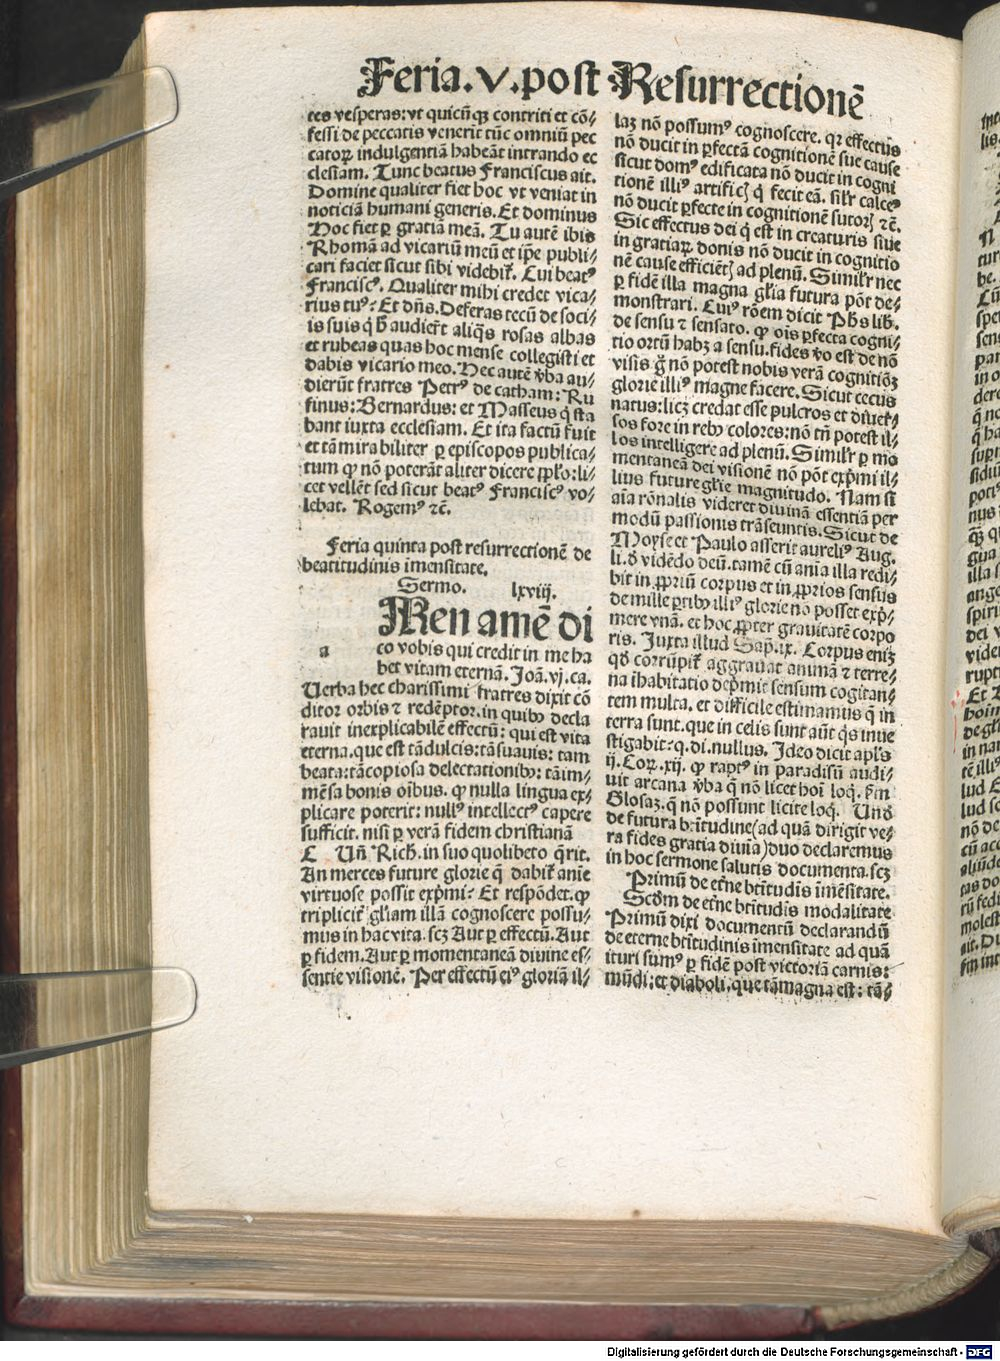 Feria.v.post Resurrectionē
tes vesperas: vt quicūqꝫ contriti et cō⸗
fessi de peccatis venerīt tūc omniū pec
catoꝝ indulgentiā habeāt intrando ec
clesiam. Tunc beatus Franciscus ait.
Domine qualiter fiet hoc vt veniat in
noticiā humani generis. Et dominus
Hoc fiet ꝑ gratiā meā. Tu autē ibis
Rhomā ad vicariū meū et ip̄e publi⸗
cari faciet sicut sibi videbit̃. Cui beatꝰ
Franciscꝰ. Qualiter mihi credet vica⸗
rius tuꝰ: Et dn̄s. Deferas tecū de soci⸗
is suis q̇ h̄ audier̄t aliq̄s rosas albas
et rubeas quas hoc mense collegisti et
dabis vicario meo. Hec autē v̄ba au⸗
dierūt fratres Petrꝰ de catham: Ru
finus: Bernardus: et Masseus q̇ sta
bant iuxta ecclesiam. Et ita factū fuit
et tā mirabiliter ꝑ episcopos publica⸗
tum ꝙ nō poterāt aliter dicere ꝓp̄lo: li⸗
cet vellēt sed sicut beatꝰ Franciscꝰ vo⸗
lebat. Rogemꝰ ⁊c̄.
Feria quinta post resurrectionē de
beatitudinis imensitate.
Sermo. lxviij.
Amen amē di
a
co vobis qui credit in me ha
bet vitam eternā. Joā. vj. ca.
Uerba hec charissimi fratres dixit cō
ditor orbis ⁊ redēptor. in quibꝰ decla
rauit inexplicabilē effectū: qui est vita
eterna. que est tā dulcis: tā suauis: tam
beata: tā copiosa delectationibꝰ: tā im⸗
mēsa bonis oībus. ꝙ nulla lingua ex⸗
plicare poterit: nullꝰ intellectꝰ capere
sufficit. nisi ꝑ verā fidem christianā
C Uñ Rich. in suo quolibeto q̄rit.
An merces future glorie q̄ dabit̃ anie
virtuose possit exp̄mi: Et respōdet. ꝙ
triplicit̃ gl̄iam illā cognoscere possu⸗
mus in hac vita. scꝫ Aut ꝑ effectū. Aut
ꝑ fidem. Aut ꝑ momentaneā diuine es⸗
sentie visionē. Per effectū eiꝰ gloriā il⸗
laꝫ nō possumꝰ cognoscere. qꝛ effectus
nō ducit in ꝑfectā cognitionē sue cause
sicut domꝰ edificata nō ducit in cogni
tionē illiꝰ artificꝭ q̇ fecit eā. sil̄r calceꝰ
nō ducit ꝑfecte in cognitionē sutorꝭ ⁊c̄.
Sic effectus dei q̇ est in creaturis siue
in gratiaꝝ donis nō ducit in cognitio
nē cause efficiētꝭ ad plenū. Simil̄r nec
ꝑ fidē illa magna gl̄ia futura pōt de⸗
monstrari. Cuiꝰ rōem dicit Ph̄s lib.
de sensu ⁊ sensato. ꝙ oīs ꝑfecta cogni⸗
tio ortū habꝫ a sensu. fides v̄o est de nō
visis g̊ nō potest nobis verā cognitiōꝫ
glorie illiꝰ magne facere. Sicut cecus
natus: licꝫ credat esse pulcros et diuer⸗
sos fore in rebꝰ colores: nō tn̄ potest il⸗
los intelligere ad plenū. Simil̄r ꝑ mo
mentaneā dei visionē nō pōt exp̄mi il⸗
lius future gl̄ie magnitudo. Nam si
aīa rōnalis videret diuinā essentiā per
modū passionis trāseuntis. Sicut de
Moyse et Paulo asserit aureliꝰ Aug.
li. d̄ vidēdo deū. tamē cū anīa illa redi⸗
bit in ꝓpriū corpus et in ꝓprios sensus
de mille ꝑtibꝰ illiꝰ glorie nō posset exp̄⸗
mere vnā. et hoc ꝓpter grauitatē corpo
ris. Juxta illud Sap̄. ix. Corpus eniꝫ
qd̄ corrūpit̃ aggrauat animā ⁊ terre⸗
na īhabitatio dep̄mit sensum cogitan⸗
tem multa. et difficile estimamus q̄ in
terra sunt. que in celis sunt aūt q̇s inue
stigabit: q. di. nullus. Ideo dicit apl̄s
ij. Coꝝ. xij. ꝙ raptꝰ in paradisū audi⸗
uit arcana v̄ba q̄ nō licet hoī loq̇. ẜm
Glosaꝫ. q̄ nō possunt licite loq̇. Und̄
de futura b̄titudine (ad quā dirigit ve⸗
ra fides gratia diuīa) duo declaremus
in hoc sermone salutis documenta. scꝫ
Primū de et̄ne b̄titudīs imēsitate.
Scd̄m de et̄ne b̄titudīs modalitate
Primū dixi documentū declarandū
de eterne b̄titudinis īmensitate ad quā
ituri sumꝰ ꝑ fidē post victoriā carnis:
mūdi: et diaboli, que tā magna est: tā⸗
Digitalisierung gefördert durch die Deutsche Forschungsgemeinschaft - DFG